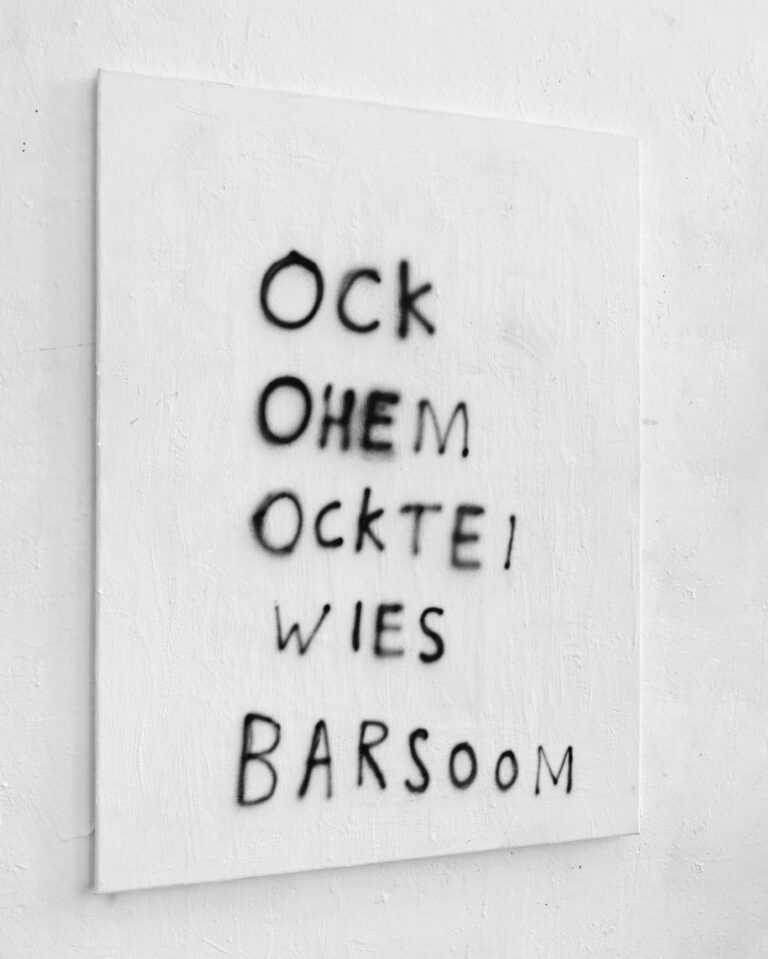 OCK
OHEM
OCKTEI
WIES
BARSOOM